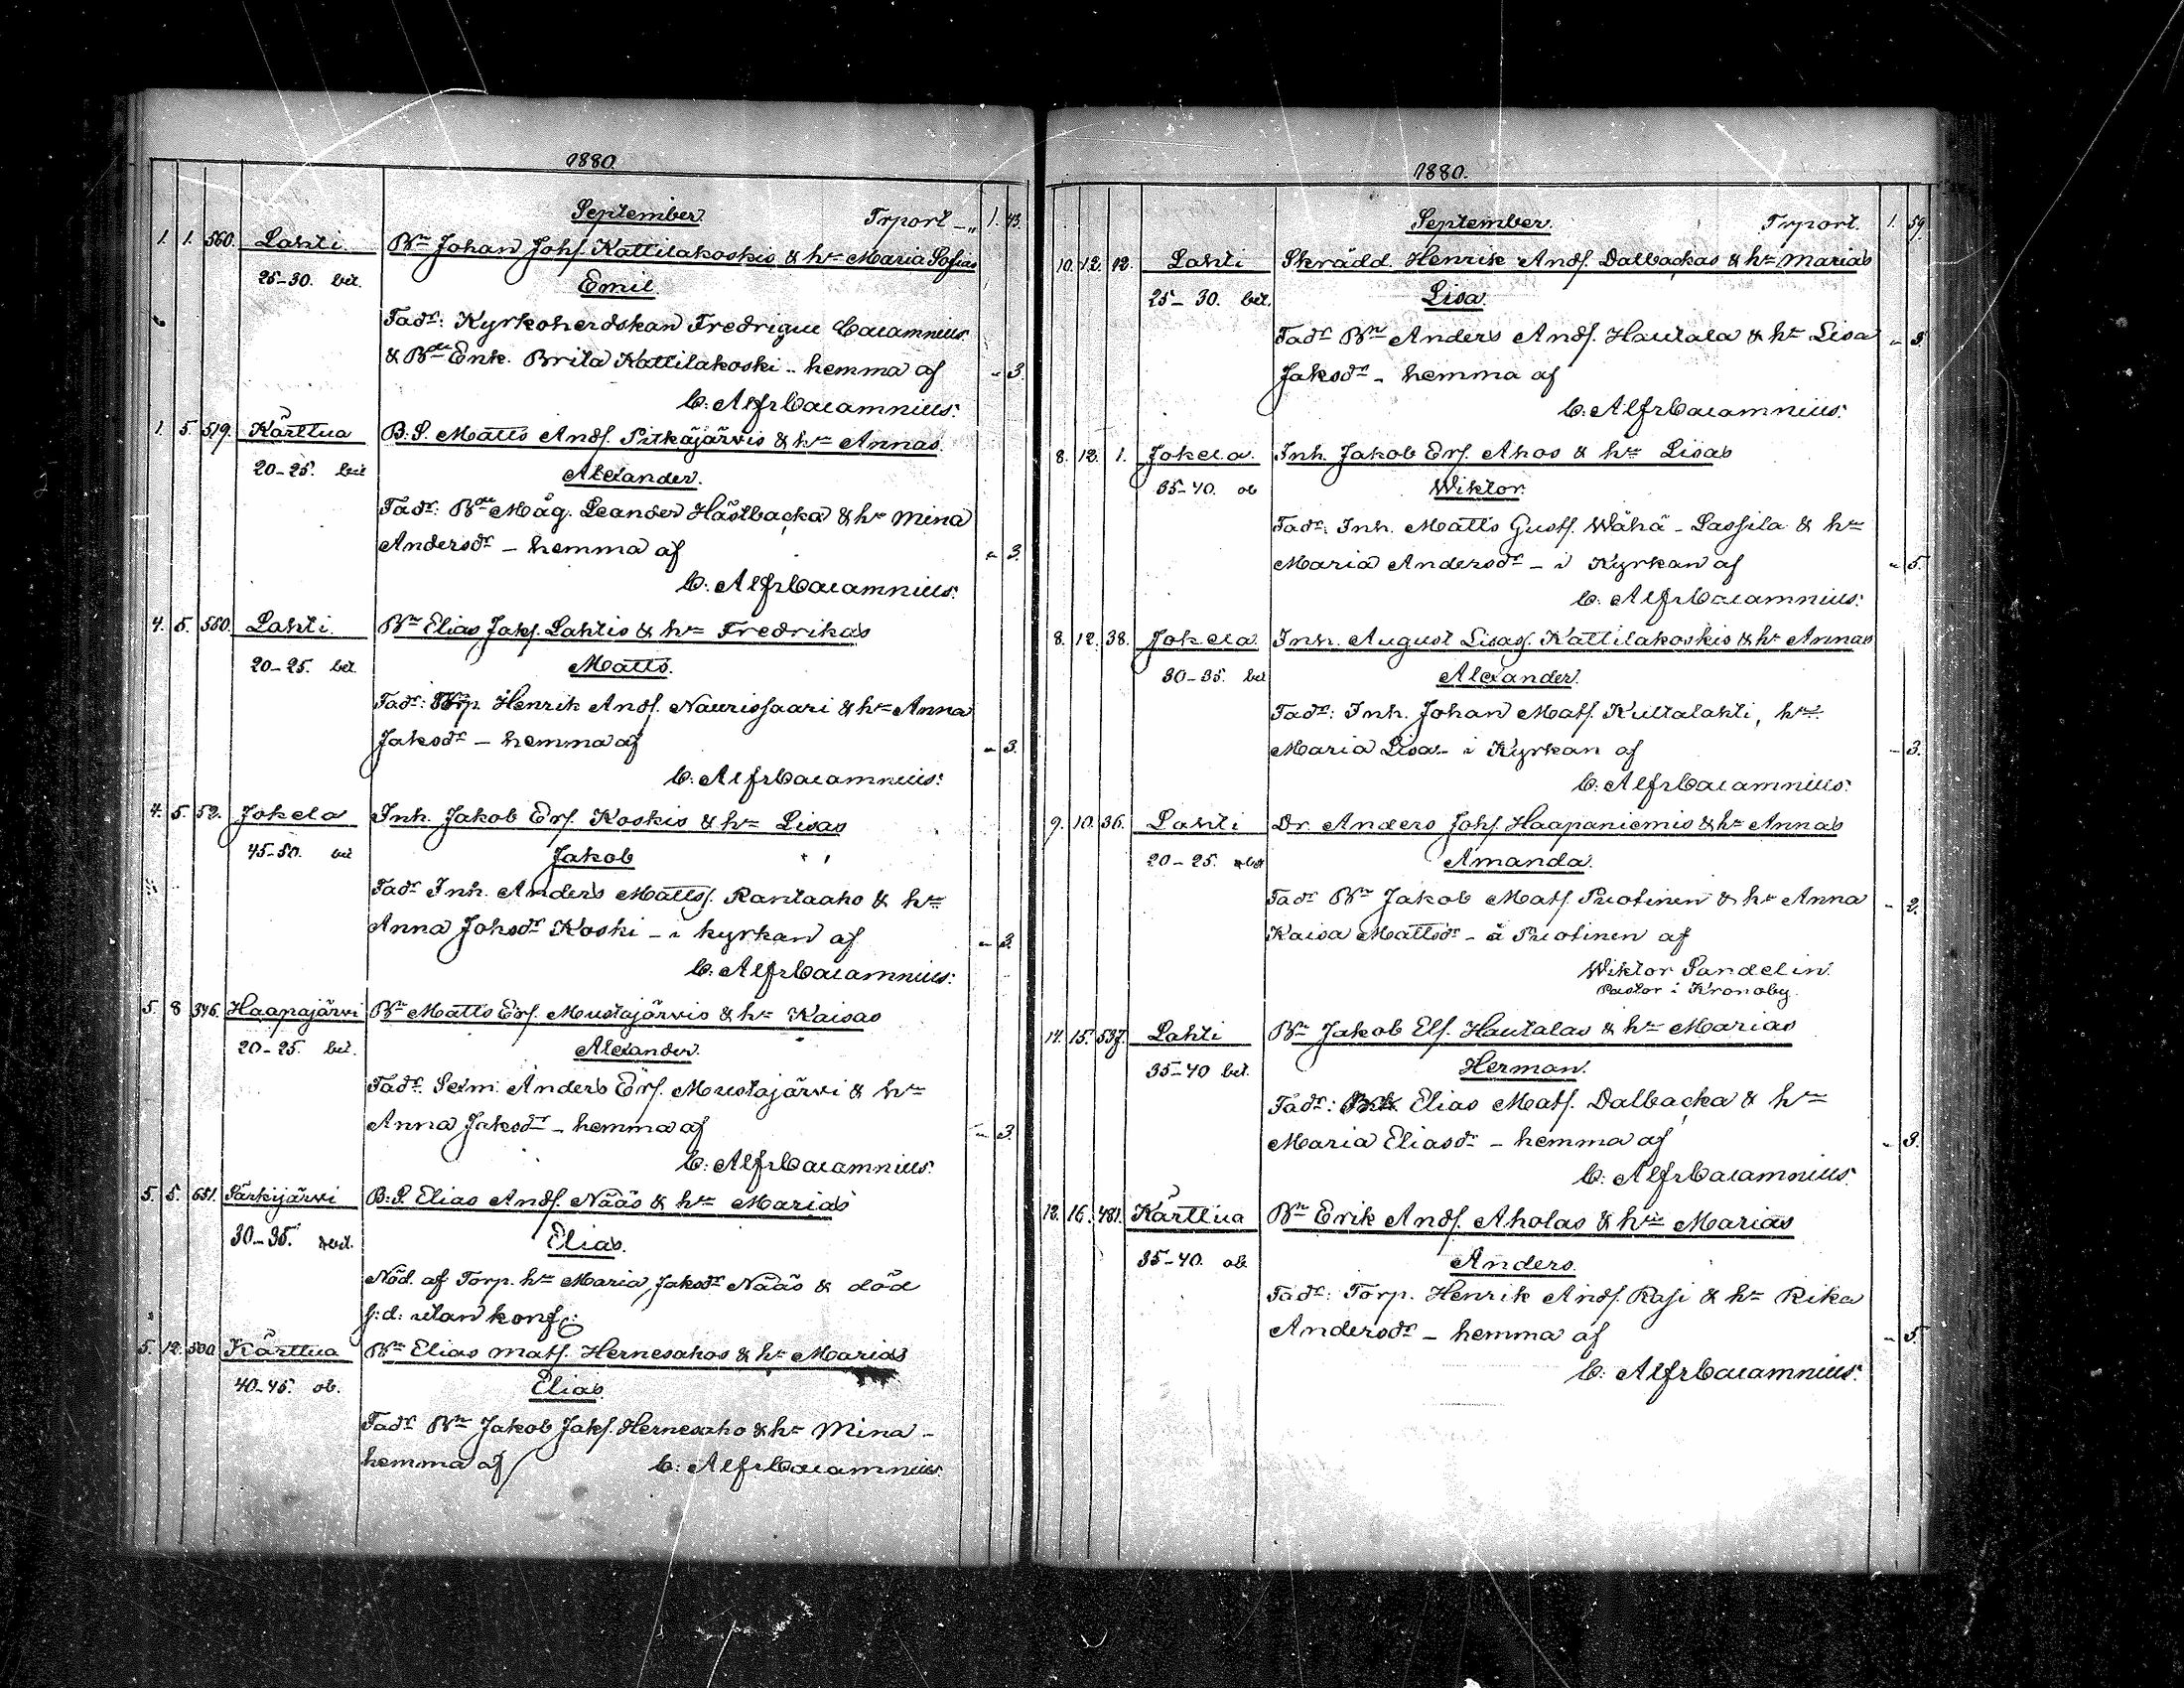 1880.
September. Trport - „ 1. 43.
1. 1. 560. Lahti. Bn Johan Johs. Kattilakoskis & hu Maria Sofias
25-30. bet. Emil.
Fadr: Kyrkoherdskan Fredrique Cajamnius.
& Bde Enk. Brita Kattilakoski - hemma af „ 3.
C: AlfrCajamnius:
1. 5. 519. Kärttua B. S. Matts Ands. Pitkäjärvis & hu Annas.
20-25. bet Alexander.
Fadr: Bde Måg. Leander Hästbacka & hu Mina
Andersdr - hemma af „ 3.
C: AlfrCajamnius:
4. 5. 550. Lahti. Bn Elias Jaks. Lahtis & hu Fredrikas
20-25. bet. Matts.
Fadr: Torp Henrik Ands. Naurissaari & hu Anna
Jaksdr - hemma af „ 3.
C: AlfrCajamnius:
4. 5. 52. Jokela Inh. Jakob Ers. Koskis & hu Lisas
45-50. bet Jakob
Fadr Inh. Anders Mattss. Rantaaho & hu
Anna Johsdr Koski - i kyrkan af „ 3.
C: AlfrCajamnius:
5. 8 346. Haapajärvi Bn Matts Ers. Mustajärvis & hu Kaisas
20-25. bet. Alexander.
Fadr. Anders Ers. Mustajärvi & hu
Anna Jaksdr - hemma af „ 3.
C: AlfrCajamnius:
5. 5. 651. Särkijärvi B: S. Elias Ands. Nääs & hu Marias
30-35. Elias.
Nöd. af Torp. hu Maria Jaksdr Nääs & död
s: d: utan konf:
5. 12. 500 Kärttua Bn Elias Mats. Hernesahos & hu Marias
40-45. ob. Elias
Fadr Bn Jakob Jaks. Hernesaho & hu Mina -
hemma af C: AlfrCajamnius:
1880.
September. Trport. 1. 59.
10. 12. 12. Lahti Skrädd. Henrik Ands. Dalbackas & hu Marias
25-30. bet. Lisa.
Fadr Bn Anders Ands. Hautala & hu Lisa „ 3.
Jaksdr - hemma af
C: AlfrCajamnius:
8. 12. 1. Jokela. Inh. Jakob Ers. Ahos & hu Lisas
35-40. ob Wiktor.
Fadr: Inh. Matts Gusts. Wähä-Lassila & hu
Maria Andersdr - i Kyrkan af „ 5.
C: AlfrCajamnius:
8. 12. 38. Jokela Inh. August Lisas. Kattilakoskis & hu Annas
30-35. bet Alexander.
Fadr: Inh. Johan Mats. Kultalahti, hu
Maria Lisa - i Kyrkan af - 3.
C: AlfrCajamnius:
9. 10. 36. Lahti Dr. Anders Johs. Haapaniemis & hu Annas
20-25. Amanda.
Fadr Bn Jakob Mats. Puotinen & hu Anna - 2.
Kaisa Mattsdr - å Puotinen af
Wiktor Sandelin.
Pastor i Kronoby.
14. 15. 537. Lahti Bn Jakob Els. Hautalas & hu Marias
35-40 bet. Herman.
Fadr: Elias Mats. Dalbacka & hu
Maria Eliasdr - hemma af „ 3.
C: AlfrCajamnius.
12. 16. 481. Kärttua Bn Erik Ands. Aholas & hu Marias
35-40. ob. Anders.
Fadr: Torp. Henrik Ands. Rasi & hu Rika
Andersdr - hemma af - 5.
C: AlfrCajamnius: